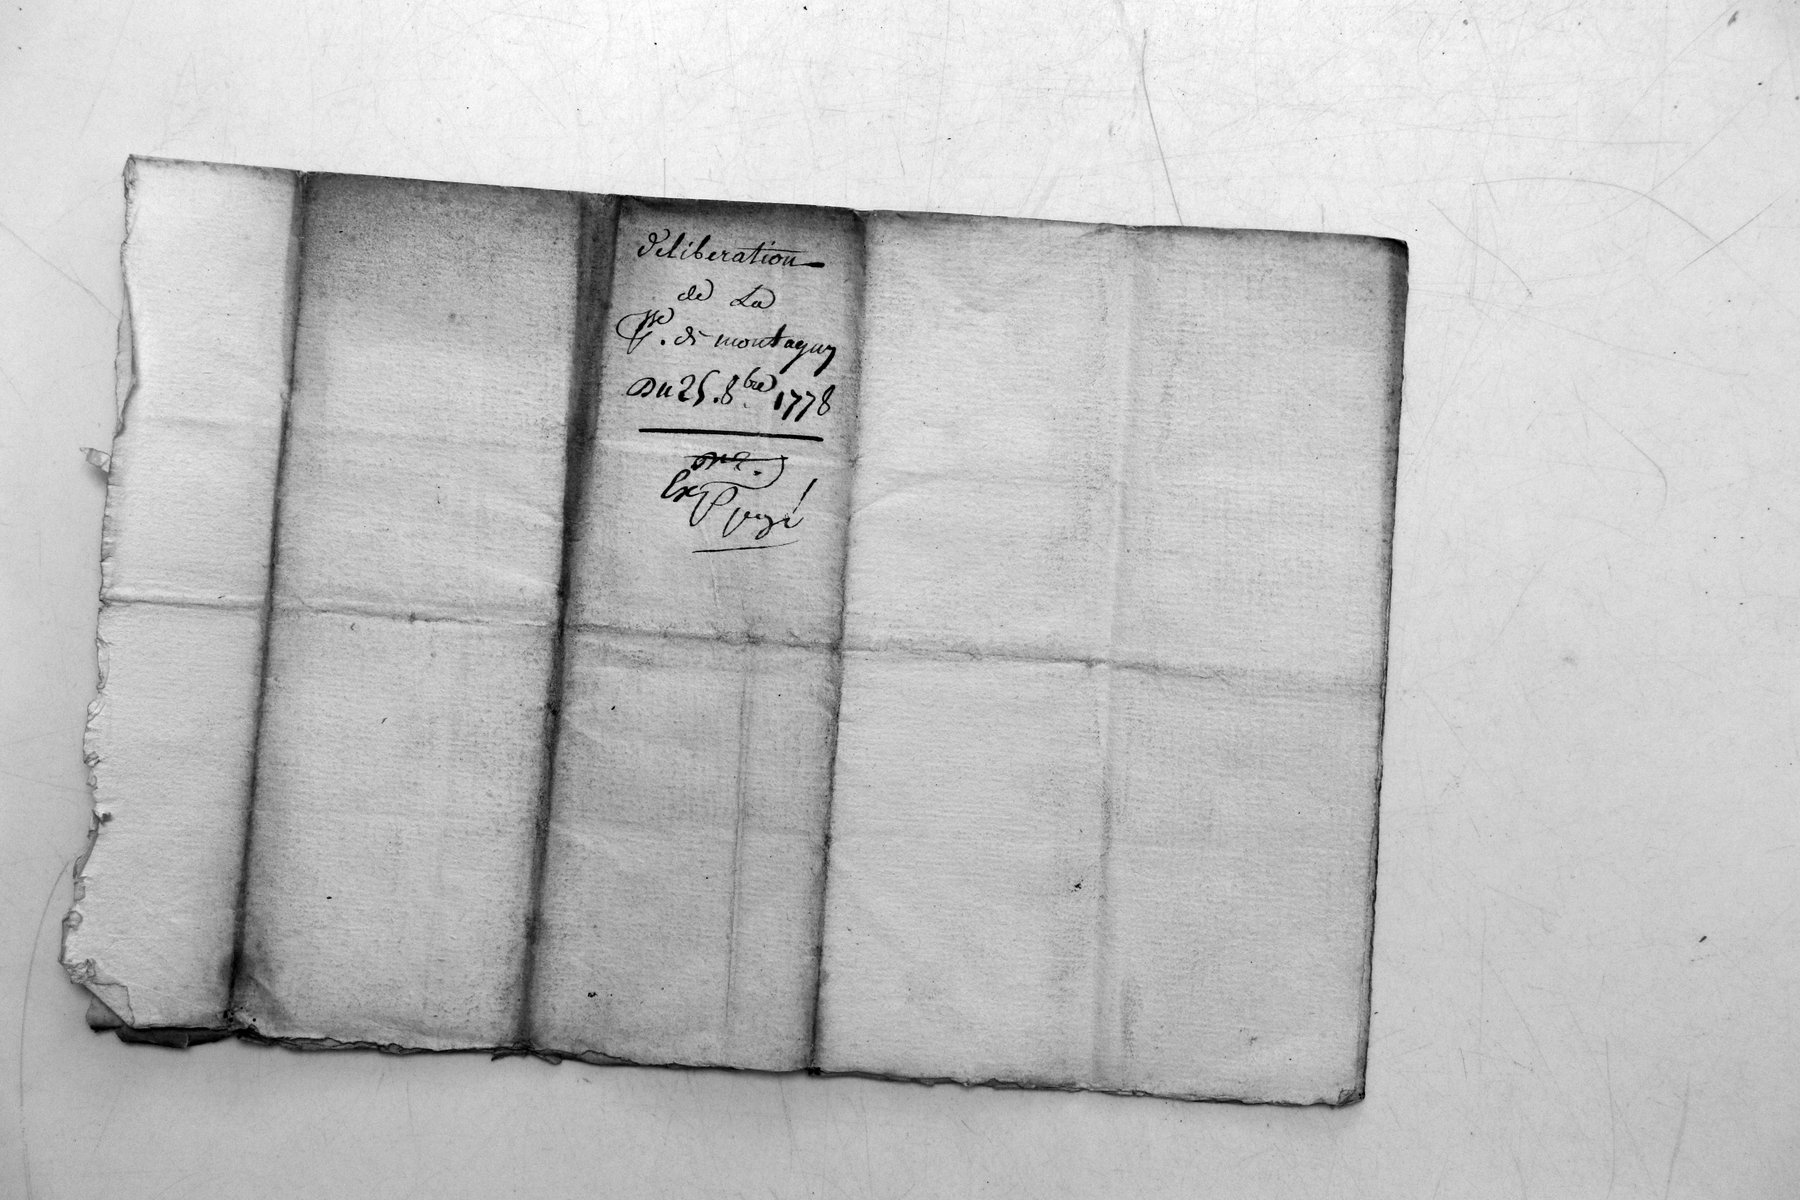 deliberation
de La
P.sse de montagny
Du 25. 8bre 1778
Exp